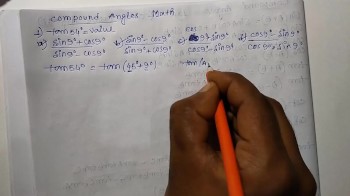 Compound Angles Math
1) tan54° = value
a) sin9°+cos9° / sin9°-cos9° b) sin9°-cos9° / sin9°+cos9° c) cos9°+sin9° / cos9°-sin9° d) cos9°-sin9° / cos9°+sin9°
tan54° = tan(45°+9°) tan(A